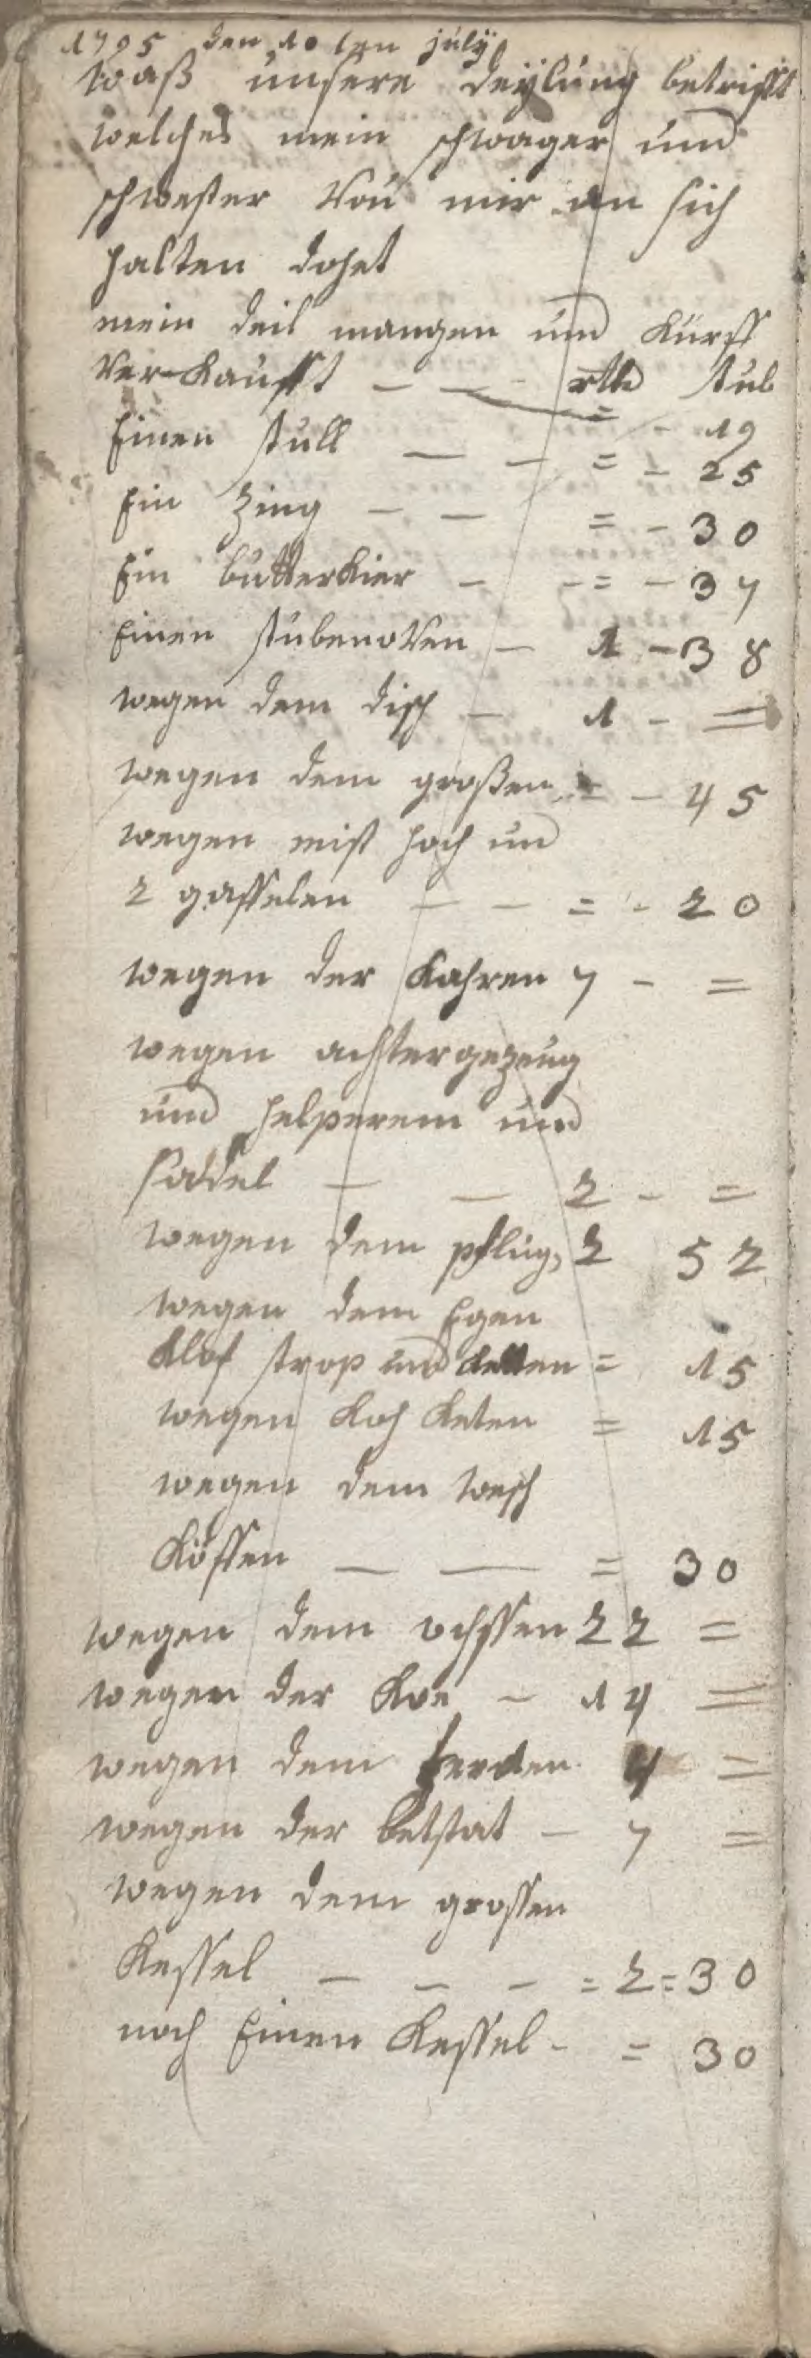 1795 den 10 ten july
waß unsere deÿlung betrifft
welches mein schwager und
schwester von mir an sich
halten dohet
mein deil mangen und Kürff
verKaufft — — - rtl stub
= - 19
Einen stull — — = - 25
Ein Zing — — = - 30
Ein butterKier — - = - 37
Einen stubenoven — 1 - 38
wegen dem disch — 1 - =
wegen dem großen = - 45
wegen mist hoch und
2 gaffelen — — = - 20
wegen der Kahren 7 - =
wegen achtergezeug
und helperem und
sadel — — 2 - =
wegen dem pflug, 2 52
wegen dem Egen
Klof strop und Ketten = 15
wegen Koh Keten = 15
wegen dem wesch
Kössen — — = 30
wegen dem ochssen 22 =
wegen der Koe - 14 =
wegen dem ferden 4 =
wegen der betstat — 7 =
wegen dem grossen
Kessel — — - = 2 = 30
noch Einen Kessel - = 30